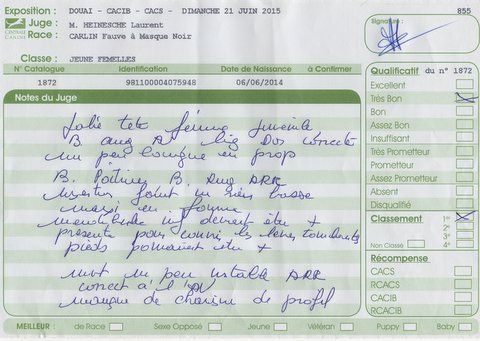 Exposition : DOUAI - CACIB - CACS - DIMANCHE 21 JUIN 2015
855
Juge : M. HEINESCHE Laurent
Signature :
Race : CARLIN Fauve à Masque Noir
CENTRALE CANINE
Classe : JEUNE FEMELLES
N° Catalogue Identification Née le à Confirmer
1872 981100004075948 06/06/2014
Notes du Juge
Jolie tete femme juvenile
B. ang A lig Dos correcte
un peu longue en prop
B. Poitrine B. ang ARR
masse
mais en forme
mandibule devrait etre +
presente pour couvrir les levres tombantes
pieds pourraient etre +
mvt un peu instable ARR
correct à l'
manque de de profil
Qualificatif du n° 1872
Excellent
Très Bon
Bon
Assez Bon
Insuffisant
Très Prometteur
Prometteur
Assez Prometteur
Absent
Disqualifié
Classement 1e
2e
3e
Non Classé 4e
Récompense
CACS
RCACS
CACIB
RCACIB
MEILLEUR : de Race Sexe Opposé Jeune Vétéran Puppy Baby